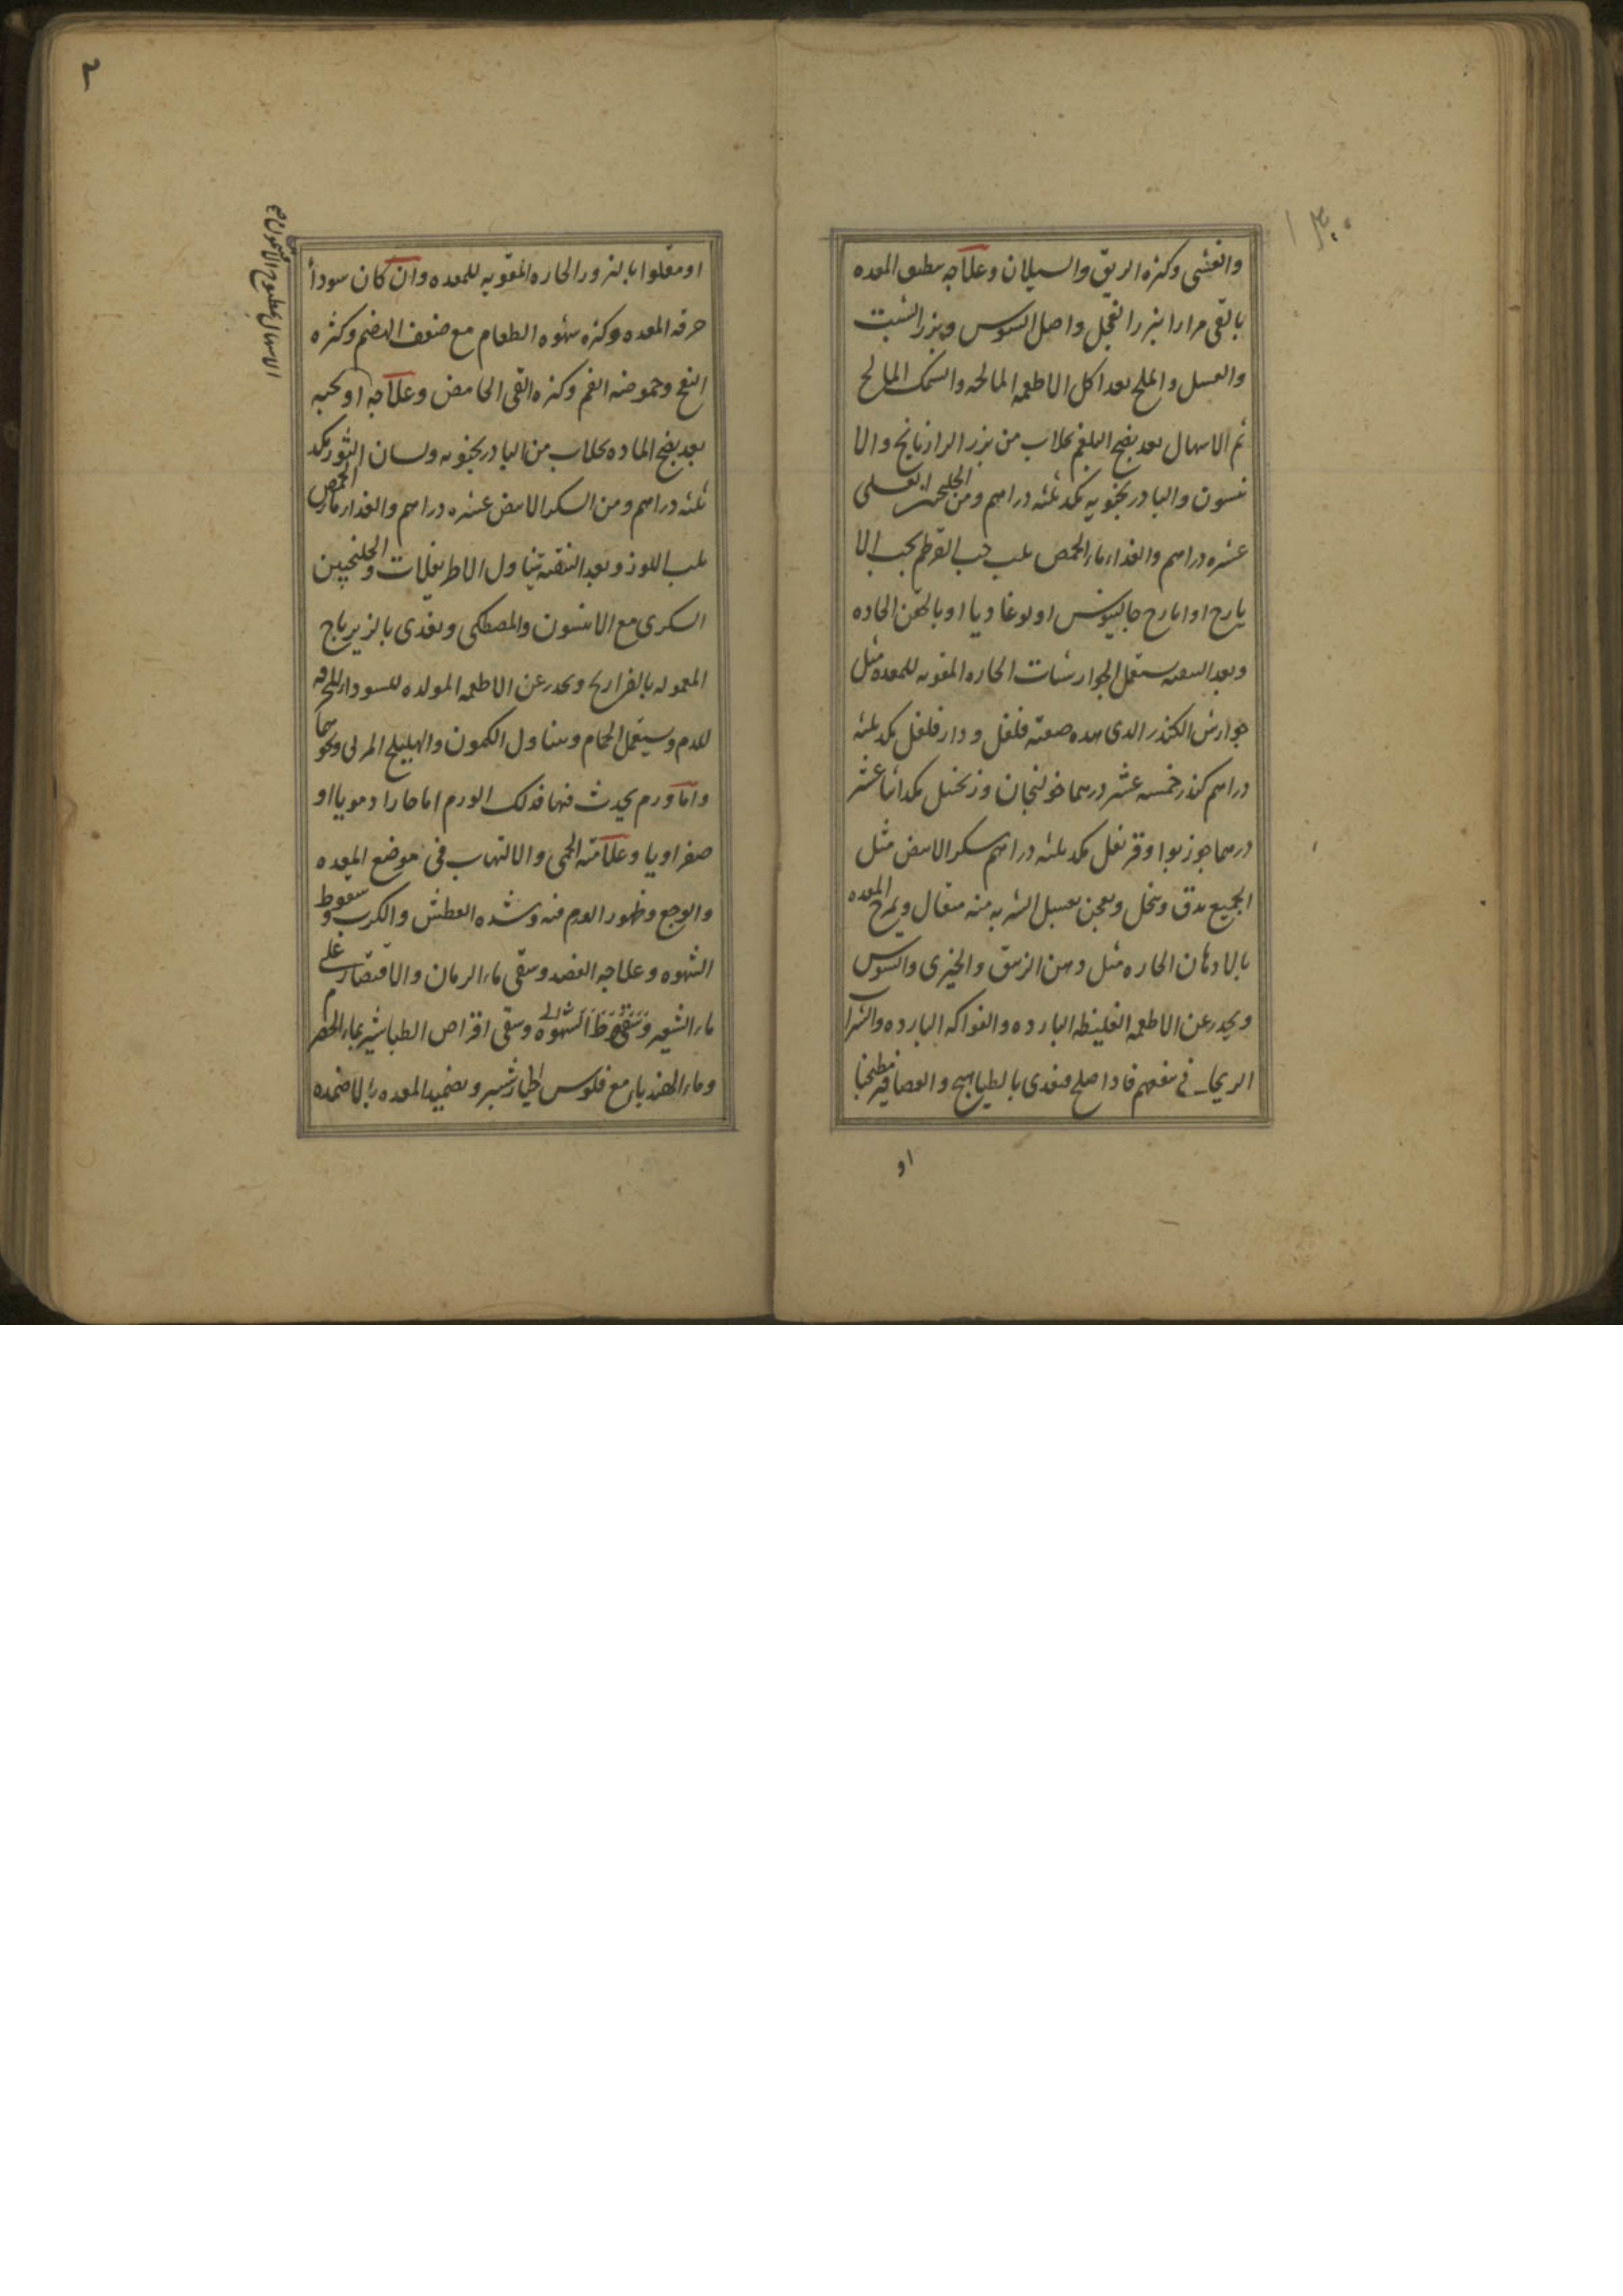 والغشى وكثره الريق والسيلان وعلاجه تنظيف المعده
بالقى مرارا ببزر الفجل واصل السوس وبزر الشبت
والعسل والملح بعد اكل الاطعمه المالحه والسمك المالح
ثم الاسهال بعد نضج البلغم بجلاب من بزر الرازيانج والا
نيسون والبادرنجويه مكد ثلثه دراهم ومن الجلنجبين العسلى
عشره دراهم والغداء ماء الحمص بلب حب القرطم بحب الا
يارج او ايارج جالينوس او لوغاديا او بالحقن الحاده
وبعد التنقيه يستعمل الجوارشات الحاره المقويه للمعده مثل
جوارش الكندر الدى هده صفته فلفل ودار فلفل مكد ثلثه
دراهم كندر خمسه عشر درهما خولنجان وزنجبيل مكد اثنا عشر
درهما جوزبوا وقرنفل مكد ثلثه دراهم سكر الابيض مثل
الجميع يدق وينخل ويعجن بعسل الشربه منه مثقال ويمرخ المعده
بالادهان الحاره مثل دهن الزنبق والخيرى والسوس
ويحدر عن الاطعمه الغليظه البارده والفواكه البارده والشراب
الريحانى فادا صلح فيغدى بالطياهيج والعصافير مطجنا
او
او مقلوا بالبزور الحاره المقويه للمعده وان كان سودا
حرقه المعده وكثره شهوه الطعام مع ضعف الهضم وكثره
النفخ وحموضه الفم وكثره القى الحامض وعلاجه او بحبه
بعد نضج الماده بجلاب من البادرنجنويه ولسان الثور مكد
ثلثه دراهم ومن السكر الابيض عشره دراهم والغداء ماء الحمص
بلب اللوز وبعد التنقيه يتناول الاطريفلات والجلنجبين
السكرى مع الانيسون والمصطكى ويغدى بالزيرباج
المعموله بالفراريج ويحدر عن الاطعمه المولده للسوداء المحرقه
للدم ويستعمل الحمام ويتناول الكمون والهليلج المربى ونحوهما
واما ورم يحدث فيها فدلك الورم اما حارا دمويا او
صفراويا وعلامته الحمى والالتهاب فى موضع المعده
والوجع وظهور الورم فيه وشده العطش والكرب وسقوط
الشهوه وعلاجه الفصد وسقى ماء الرمان والاقتصار على
ماء الشعير وسقوط الشهوه وسقى اقراص الطباشير بماء الحصرم
وماء الهندباء مع فلوس الخيارشنبر وتضميد المعده بالاضمده
الاسهال بمطبوخ الافتيمون